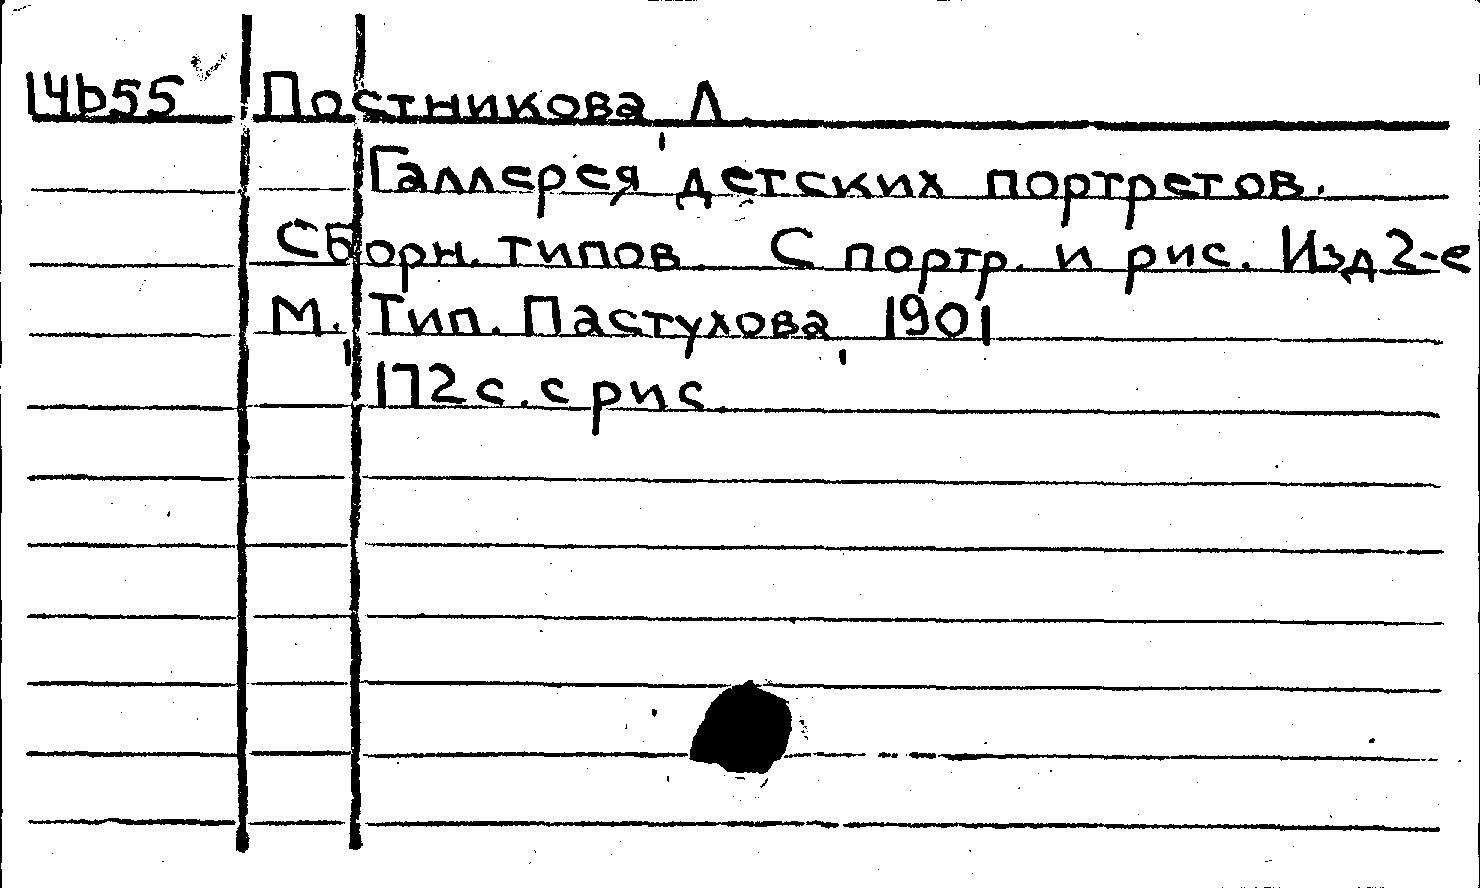 14b55 Постникова, Л.
Галлерея детских портретов.
Сборн. типов. С портр. и рис. Изд 2-е
М., Тип. Пастухова, 1901
172 с. с рис.